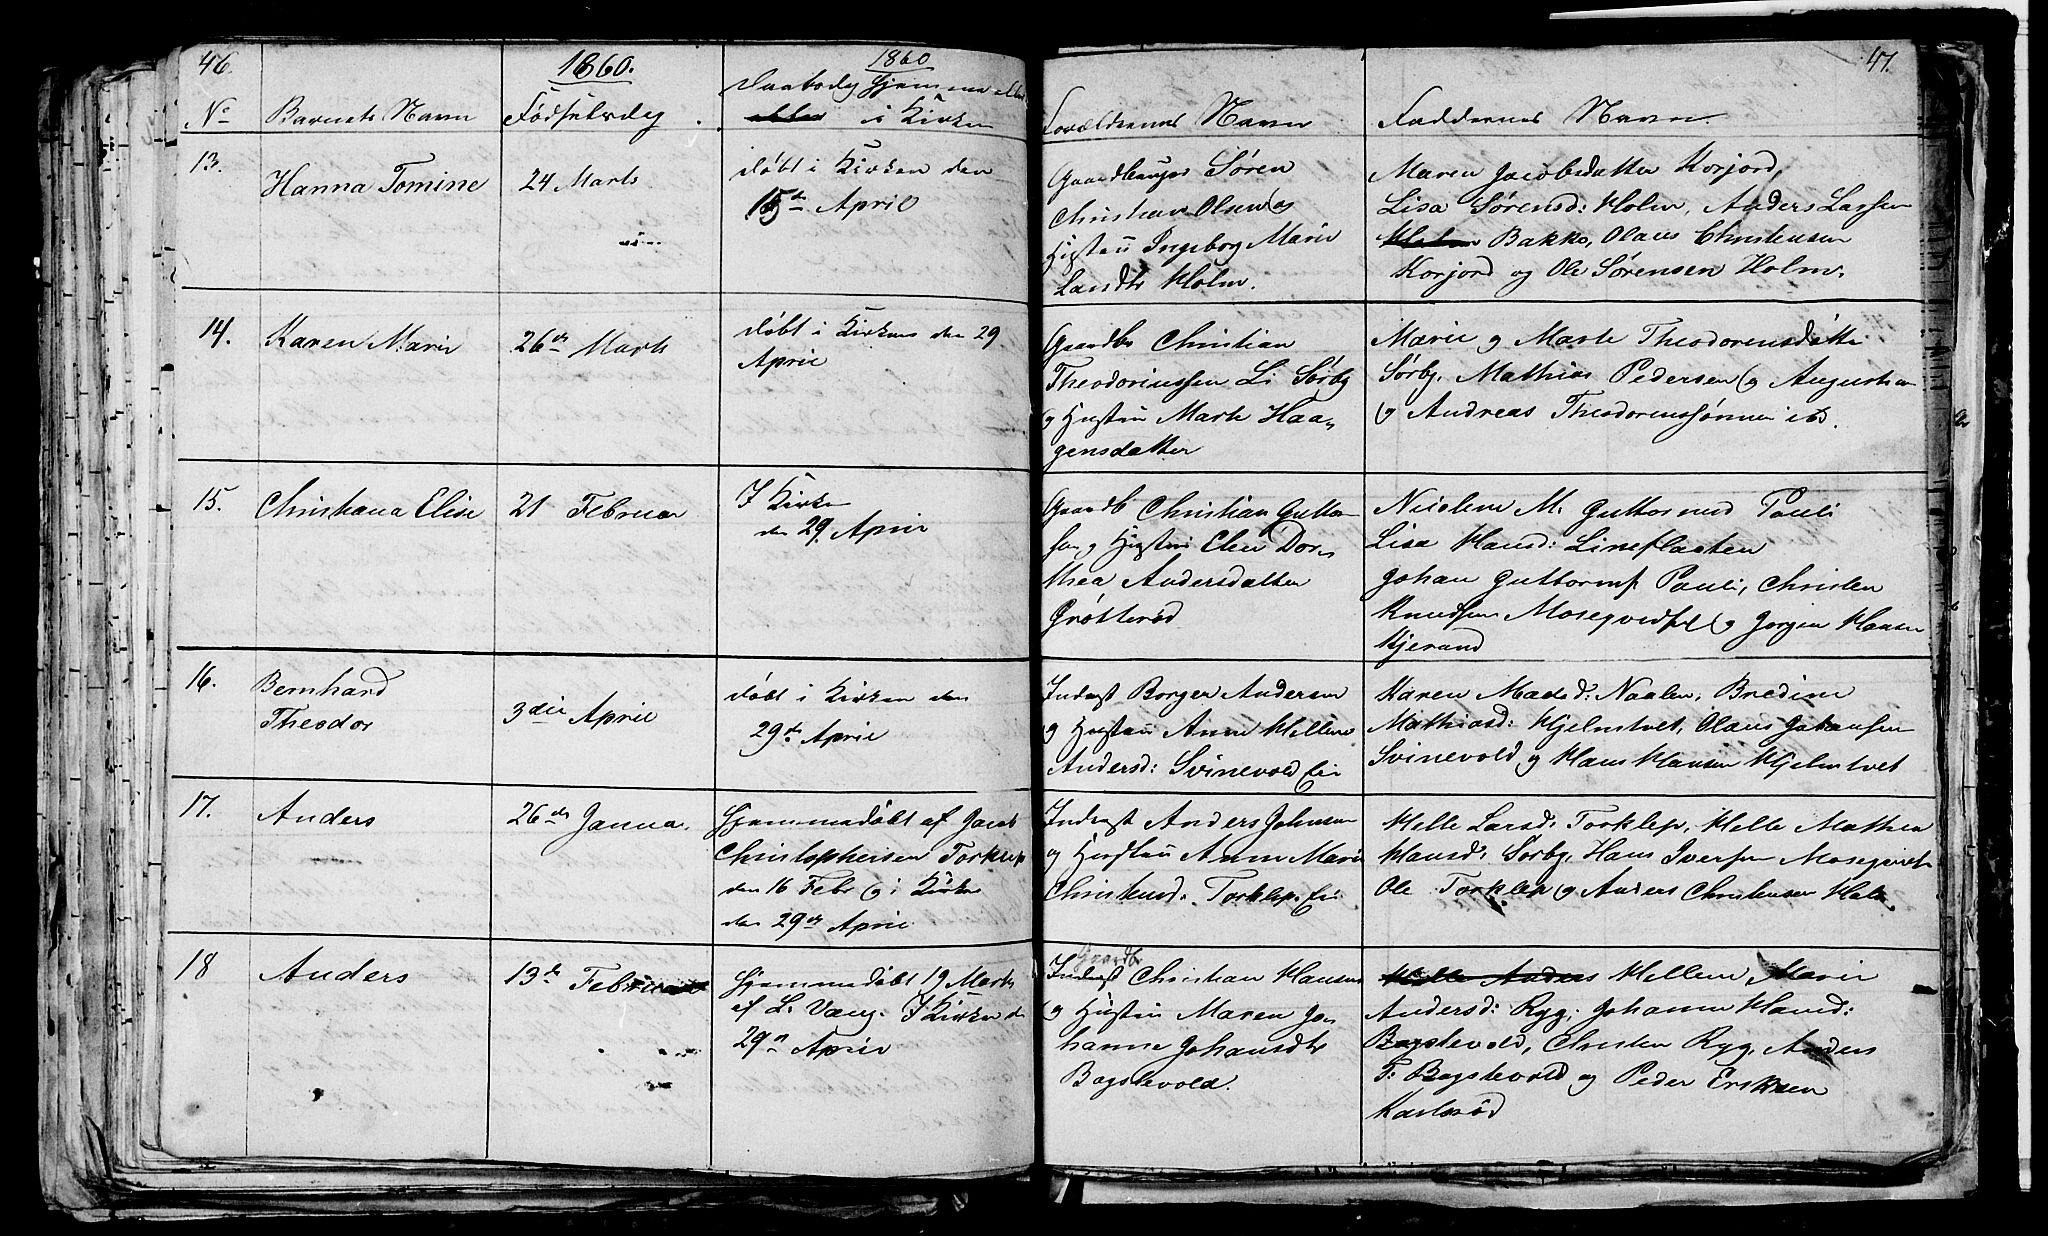 46.
1860.
1860
No
Barnets Navn
Fødselsdag
Daabsdag hjemme eller
i Kirken
13.
Hanna Tomine
24 Marts
døbt i Kirken den
15de April
14.
Karen Marie
26de Marts
døbt i Kirken den 29
April
15.
Christiana Elise
21 Februar
I Kirken
den 29. April
16.
Bernhard
Theodor
3die April
døbt i Kirken den
29de April
17.
Anders
26de Janua.
Hjemmedøbt af Jacob
Christophersen Torklep
den 16 Febr og i Kirken
den 29de April
18
Anders
13de Februar
Hjemmedøbt 19 Marts
af L. Vang. I Kirken den
29de April
47.
Forældrenes Navn
Faddernes Navn.
Gaardbruger Søren
Christian Olsen og
Hustru Ingeborg Marie
Larsdtr Holm.
Maren Jacobsdatter Korjord,
Lisa Sørensd: Holm, Anders Larsen
Holm Bakke, Olaus Christensen
Korjord og Ole Sørensen Holm.
Gaardbr Christian
Theodoriussen Li Sørby
og Hustru Marte Haa-
gensdatter
Marie og Marte Theodorensdøttre
Sørby, Mathias Pedersen og Augustin
og Andreas Theodorenssønner ibd.
Gaardb Christian Guttor
sen og Hustru Elen Dor-
thea Andersdatter
Grøtterød
M. Guttormsd Pauli
Lisa Hansd: Lineflaaten
Johan Guttormss Pauli, Christen
Knudsen og Jørgen Hansen
Hjerand
Inderst Borger Andersen
og Hustru Anne Hellene
Andersd: Svinevold Eie
Karen Madsd: Naalen, Bredine
Mathiasd: Hjelmtvet, Olaus Johansen
Svinevold og Hans Hansen Hjelmtvet
Inderst Anders Johnsen
og Hustru Anne Marie
Christensd. Torklep. Eie
Helle Larsd. Torklep, Helle Mathea
Hansd: Sørby, Hans Iversen
Ole Torklep og Anders Christensen Holt.
Gaardbr
Inderst Christian Hansen
og Hustru Maren Jo-
hanne Johansdtr
Bøgstevold.
Helle Anders Hellene Marie
Andersd: Ryg, Johanne Hansd:
Bøgstevold, Christen Ryg, Anders
T: Bøgstevold og Peder Eriksen
Karlsrød